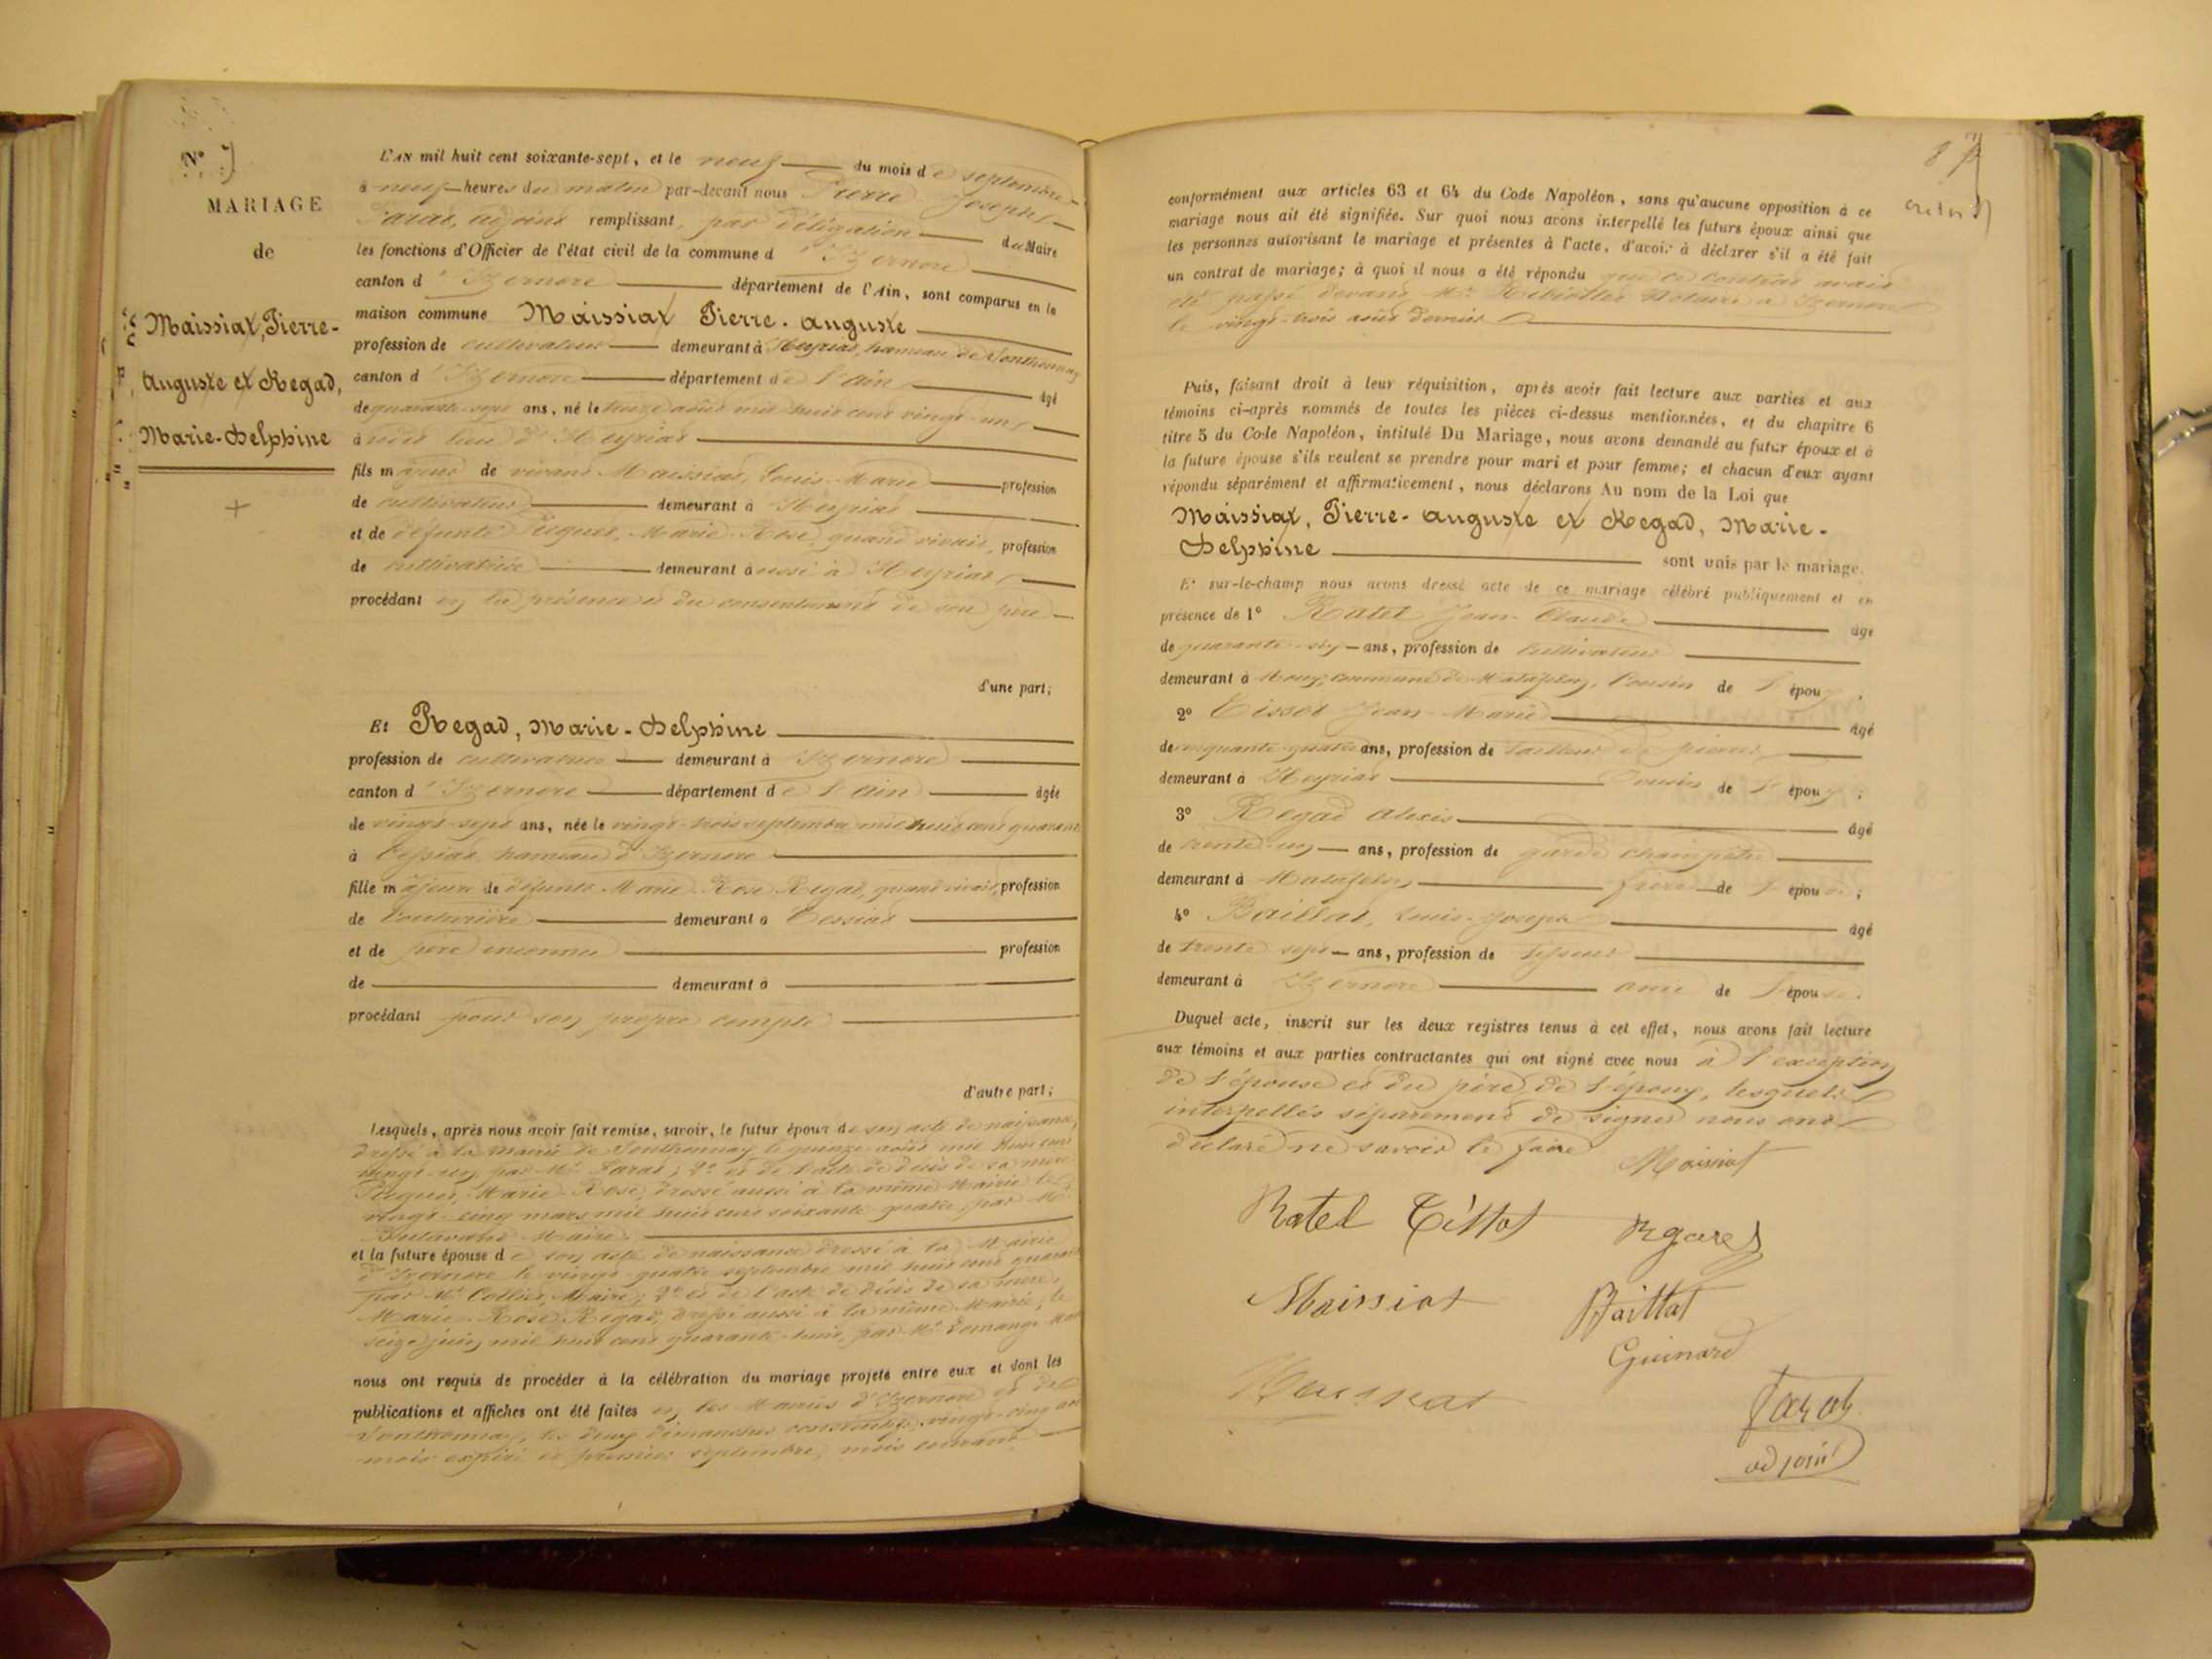 N° 7
MARIAGE
de
Maissiat, Pierre-
Auguste et Regad,
Marie-Delphine
L'AN mil huit cent soixante-sept, et le neuf du mois de septembre
à neuf heures du matin par-devant nous Pierre Joseph
Farat, adjoint remplissant, par délégation du Maire
les fonctions d'Officier de l'état civil de la commune d'Izernore
canton d'Izernore département de l'Ain, sont comparus en la
maison commune Maissiat Pierre-Auguste
profession de cultivateur demeurant à Heyriat, hameau de Sonthonnax
canton d'Izernore département de l'Ain âgé
de quarante-sept ans, né le août mil huit cent vingt-un
à lieu d'Heyriat
fils majeur de vivant Maissiat, Louis-Marie profession
de cultivateur demeurant à Heyriat
et de défunte Marie-Rose, quand vivait, profession
de cultivatrice demeurant aussi à Heyriat
procédant en la présence et du consentement de son père
d'une part;
Et Regad, Marie-Delphine
profession de cultivatrice demeurant à Izernore
canton d'Izernore département de l'Ain âgée
de vingt-sept ans, née le vingt-trois septembre mil huit cent quarante
à Tessiat, hameau d'Izernore
fille majeure de défunte Marie-Rose Regad, quand vivait, profession
de couturière demeurant à Tessiat
et de père inconnu profession
de demeurant à
procédant pour son propre compte
d'autre part;
Lesquels, après nous avoir fait remise, savoir, le futur époux de son acte de naissance,
dressé à la mairie de Sonthonnax le quinze août mil huit cent
vingt-un par Mr Farat; 2° et de l'acte de décès de sa mère
Marie-Rose, dressé aussi à la même Mairie le
vingt-cinq mars mil huit cent soixante-quatre, par Mr
Maire
et la future épouse de son acte de naissance dressé à la Mairie
d'Izernore le vingt-quatre septembre mil huit cent quarante
par Mr Maire; 2° et de l'acte de décès de sa mère,
Marie-Rose Regad, dressé aussi à la même Mairie, le
seize juin mil huit cent quarante-huit, par Mr
nous ont requis de procéder à la célébration du mariage projeté entre eux et dont les
publications et affiches ont été faites en les Mairies d'Izernore et de
Sonthonnax, les deux dimanches consécutifs, vingt-cinq août
mois expiré et premier septembre, mois courant
87
conformément aux articles 63 et 64 du Code Napoléon, sans qu'aucune opposition à ce
mariage nous ait été signifiée. Sur quoi nous avons interpellé les futurs époux ainsi que
les personnes autorisant le mariage et présentes à l'acte, d'avoir à déclarer s'il a été fait
un contrat de mariage; à quoi il nous a été répondu que ce contrat avait
été passé devant Me Notaire à Izernore
le vingt-trois août dernier
Puis, faisant droit à leur réquisition, après avoir fait lecture aux parties et aux
témoins ci-après nommés de toutes les pièces ci-dessus mentionnées, et du chapitre 6
titre 5 du Code Napoléon, intitulé Du Mariage, nous avons demandé au futur époux et à
la future épouse s'ils veulent se prendre pour mari et pour femme; et chacun d'eux ayant
répondu séparément et affirmativement, nous déclarons Au nom de la Loi que
Maissiat, Pierre-Auguste et Regad, Marie-
Delphine sont unis par le mariage.
Et sur-le-champ nous avons dressé acte de ce mariage célébré publiquement et en
présence de 1° Ratel Jean-Claude âgé
de quarante-six ans, profession de cultivateur
demeurant à commune de Matafelon, cousin de l'époux;
2° Tissot Jean-Marie âgé
de cinquante-quatre ans, profession de tailleur de pierres
demeurant à Heyriat Cousin de l'époux;
3° Regad Alexis âgé
de trente-un ans, profession de garde champêtre
demeurant à Matafelon frère de l'épouse;
4° Baillat, Louis-Joseph âgé
de trente-sept ans, profession de tisseur
demeurant à Izernore ami de l'épouse.
Duquel acte, inscrit sur les deux registres tenus à cet effet, nous avons fait lecture
aux témoins et aux parties contractantes qui ont signé avec nous à l'exception
de l'épouse et du père de l'époux, lesquels
interpellés séparément de signer nous ont
déclaré ne savoir le faire
Maissiat
Ratel Tissot Rgares
Maissiat Baillat
Guinard
Maissiat
Farat
adjoint